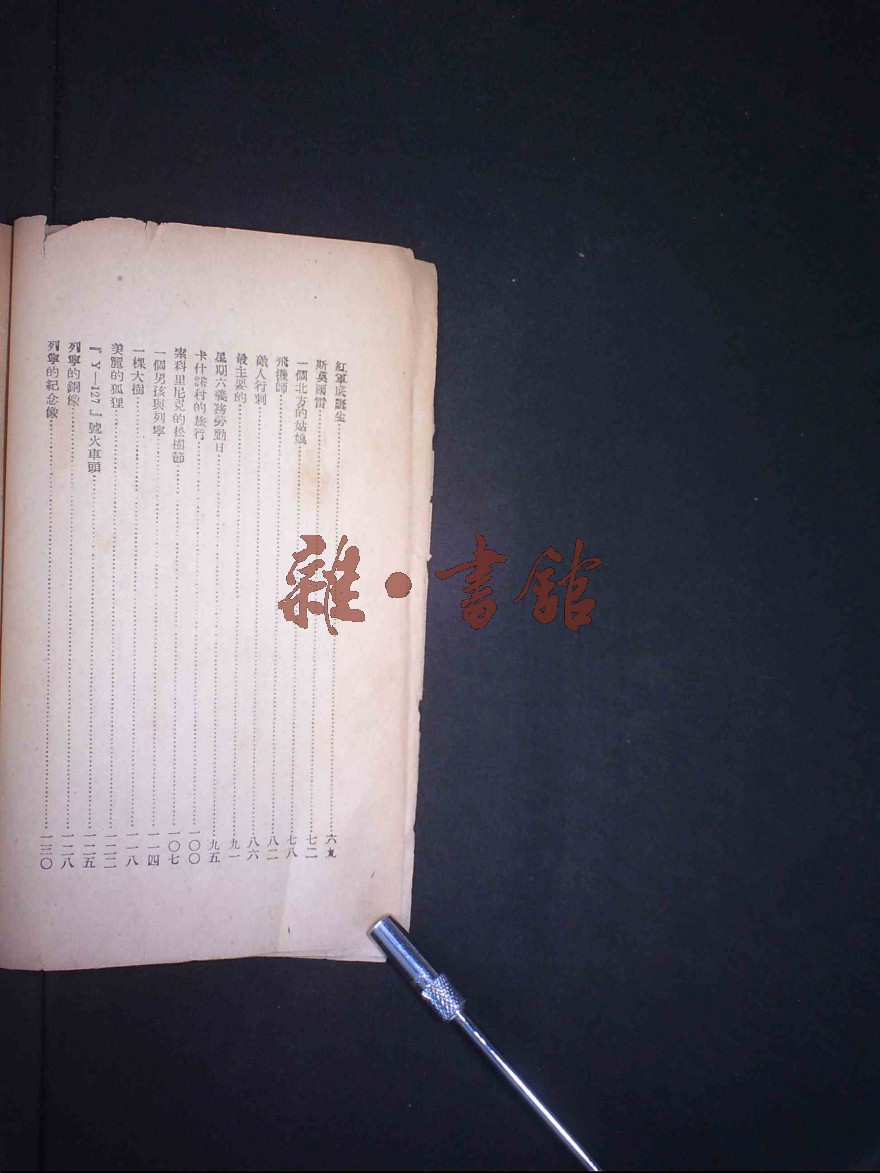 紅軍底誕生……六九
斯莫爾雷……七二
一個北方的姑娘……七八
飛機師……八二
敵人行刺……八六
最主要的……九一
星期六義務勞動日……九五
卡什諾村的旅行……一〇〇
索科里尼克的松樹節……一〇七
一個男孩與列寧……一一四
一棵大樹……一一八
美麗的狐狸……一二二
『Y—127』號火車頭……一二五
列寧的銅像……一二八
列寧的紀念像……一三〇
雜·書館